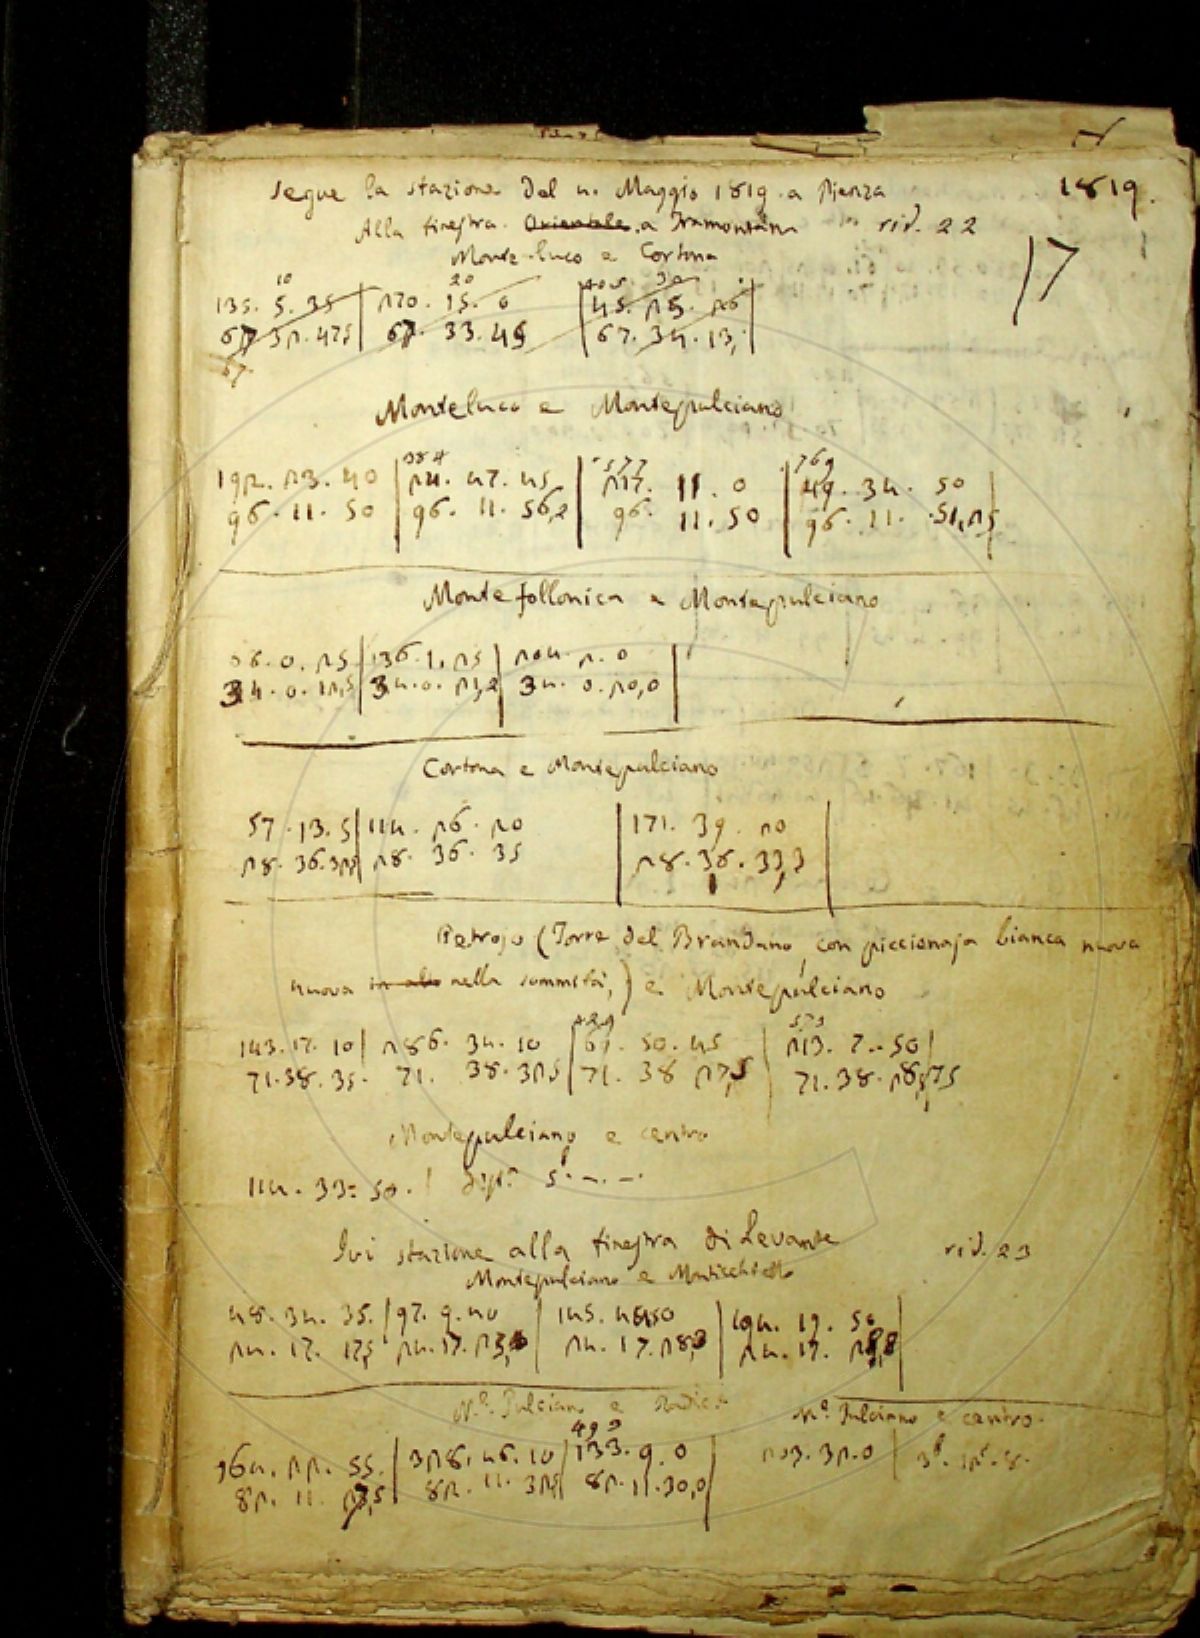 Segue la stazione del 4. Maggio 1819. a Pienza
1819.
Alla finestra. Orientale. a Tramontana rid. 22
17
Monte-luco e Cortona
10 20 405 30
135. 5. 35 | 270. 15. 0 | 45. 25. 26
67. 32. 475 | 67. 33. 45 | 67. 34. 13,
67
Monteluco e Montepulciano
384 577 769
192. 23. 40 | 24. 47. 45 | 217. 11. 0 | 49. 34. 50
96. 11. 50 | 96. 11. 56,2 | 96. 11. 50 | 96. 11. 51,25
Monte follonica e Montepulciano
68. 0. 25 | 136. 1. 25 | 204. 2. 0
34. 0. 12,5 | 34. 0. 21,2 | 34. 0. 20,0
Cortona e Montepulciano
57. 13. 5 | 114. 26. 20 | 171. 39. 20
28. 36. 325 | 28. 36. 35 | 28. 36. 33,3
Petrojo (Torre del Brandano, con piccionaja bianca nuova
nuova in alto nella sommità,) e Montepulciano
429 573
143. 17. 10 | 286. 34. 10 | 69. 50. 45 | 213. 7. 50 |
71. 38. 35. 71. 38. 325 | 71. 38 27,5 | 71. 38. 28,75
Montepulciano e centro
114. 33. 50. |
Ivi stazione alla finestra di Levante rid. 23
Montepulciano e Montischiello
48. 34. 35. | 97. 9. 40 | 145. 44 50 | 194. 19. 50
24. 17. 17,5 24. 17. 25, | 24. 17. 28,3 | 24. 17. 28,8
M.e Pulciano e Radic. M.e Pulciano e centro.
493
164. 22. 55. | 328. 46. 10 | 133. 9. 0 | 203. 32. 0 |
82. 11. 27,5 | 82. 11. 325 | 82. 11. 30,0